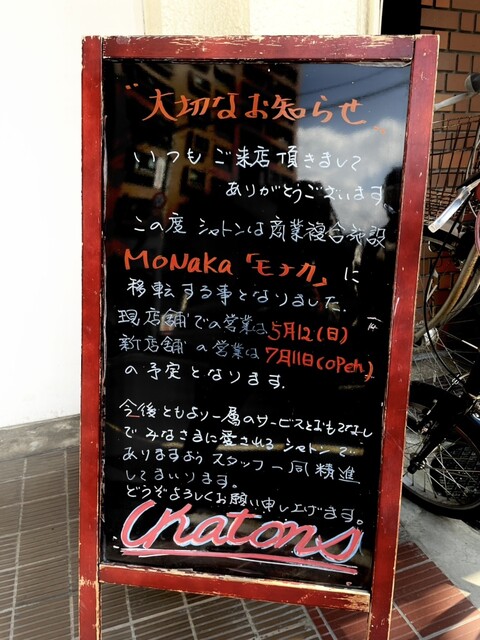 "大切なお知らせ"
いつもご来店頂きまして
ありがとうございます。
この度 シャトンは商業複合施設
MoNaKa「モナカ」に
移転する事となりました。
現店舗での営業は5月12(日)
新店舗の営業は7月11日(open)
の予定となります。
今後ともより一層のサービスとおもてなし
でみなさまに愛されるシャトンで
ありますようスタッフ一同精進
してまいります。
どうぞよろしくお願い申し上げます。
Chatons